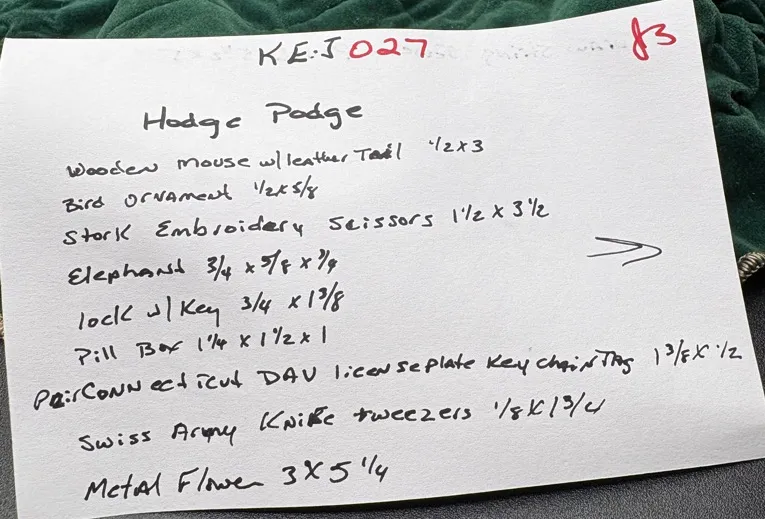 KE:J 027
83
Hodge Podge
Wooden mouse w/leather Tail 1/2 x 3
Bird ORNAMENT 1/2 x 5/8
Stork Embroidery Scissors 1 1/2 x 3 1/2
Elephant 3/4 x 5/8 x 3/4
lock w/ Key 3/4 x 1 3/8
Pill Box 1 1/4 x 1 1/2 x 1
Pair CONNecticut DAV license plate Key chain Tag 1 3/8 x 1/2
Swiss Army Knife tweezers 1/8 x 1 3/4
Metal Flower 3 x 5 1/4